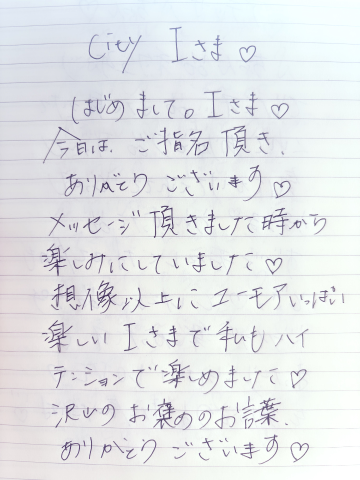 City Iさま♡
はじめまして。Iさま♡
今日は、ご指名 頂き、
ありがとう ございます♡
メッセージ 頂きました時から
楽しみにしていました♡
想像以上に ユーモアいっぱい
楽しい Iさまで 私も ハイ
テンションで 楽しめました♡
沢山の お褒めのお言葉、
ありがとう ございます♡